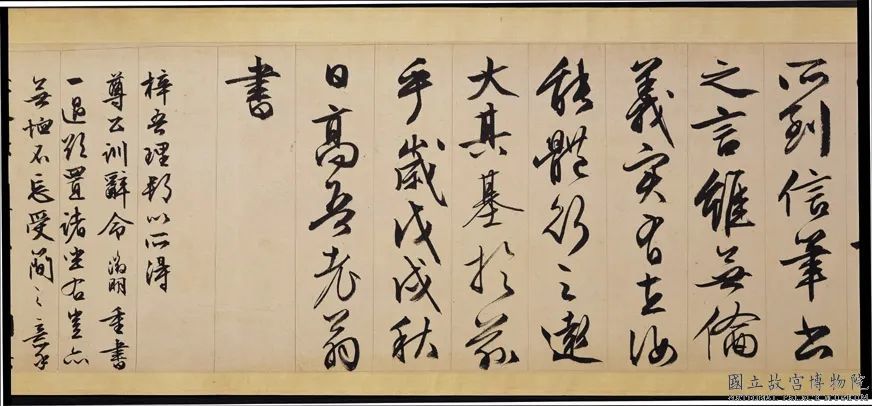 所到信筆出
之言雖無倫
義實有在汝
能體行之遠
大其基於茲
乎歲戊戌秋
日高吾老翁
書
梓吾理 以所得
尊公訓辭命徵明重書
一過欲置諸坐右豈亦
無恤不忘受簡之意乎
國立故宮博物院
NATIONAL PALACE MUSEUM